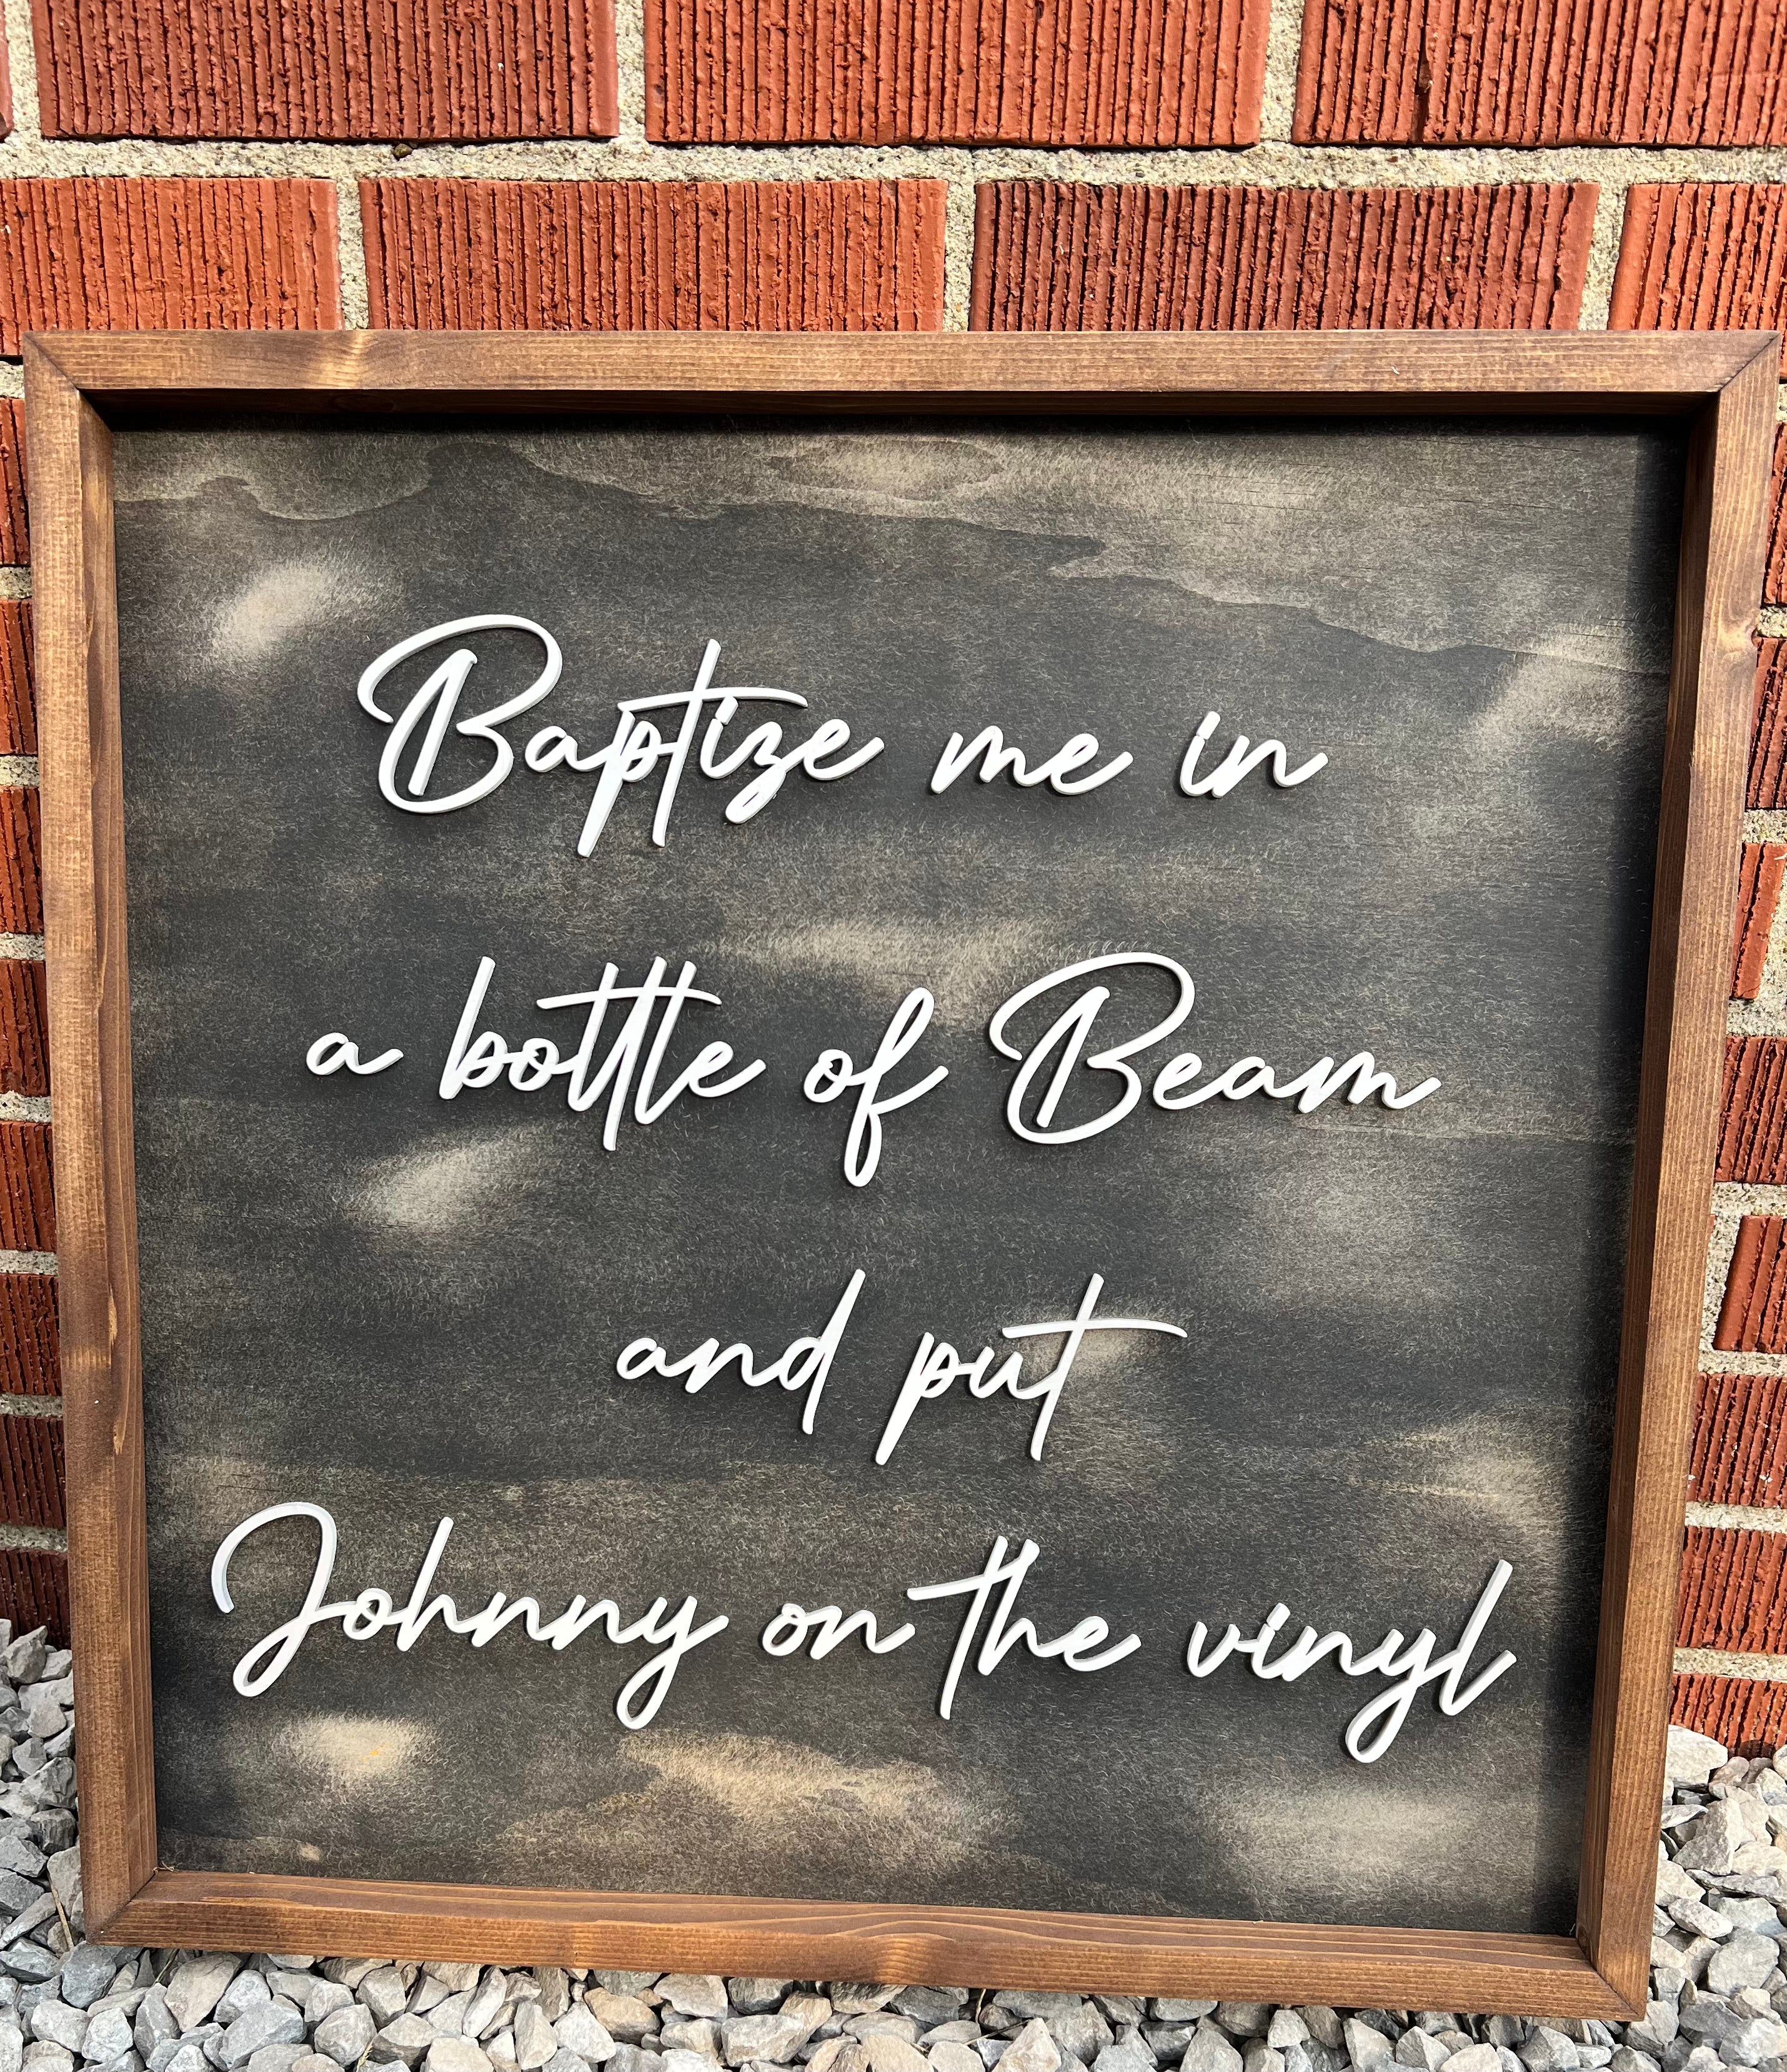 Baptize me in
a bottle of Beam
and put
Johnny on the vinyl